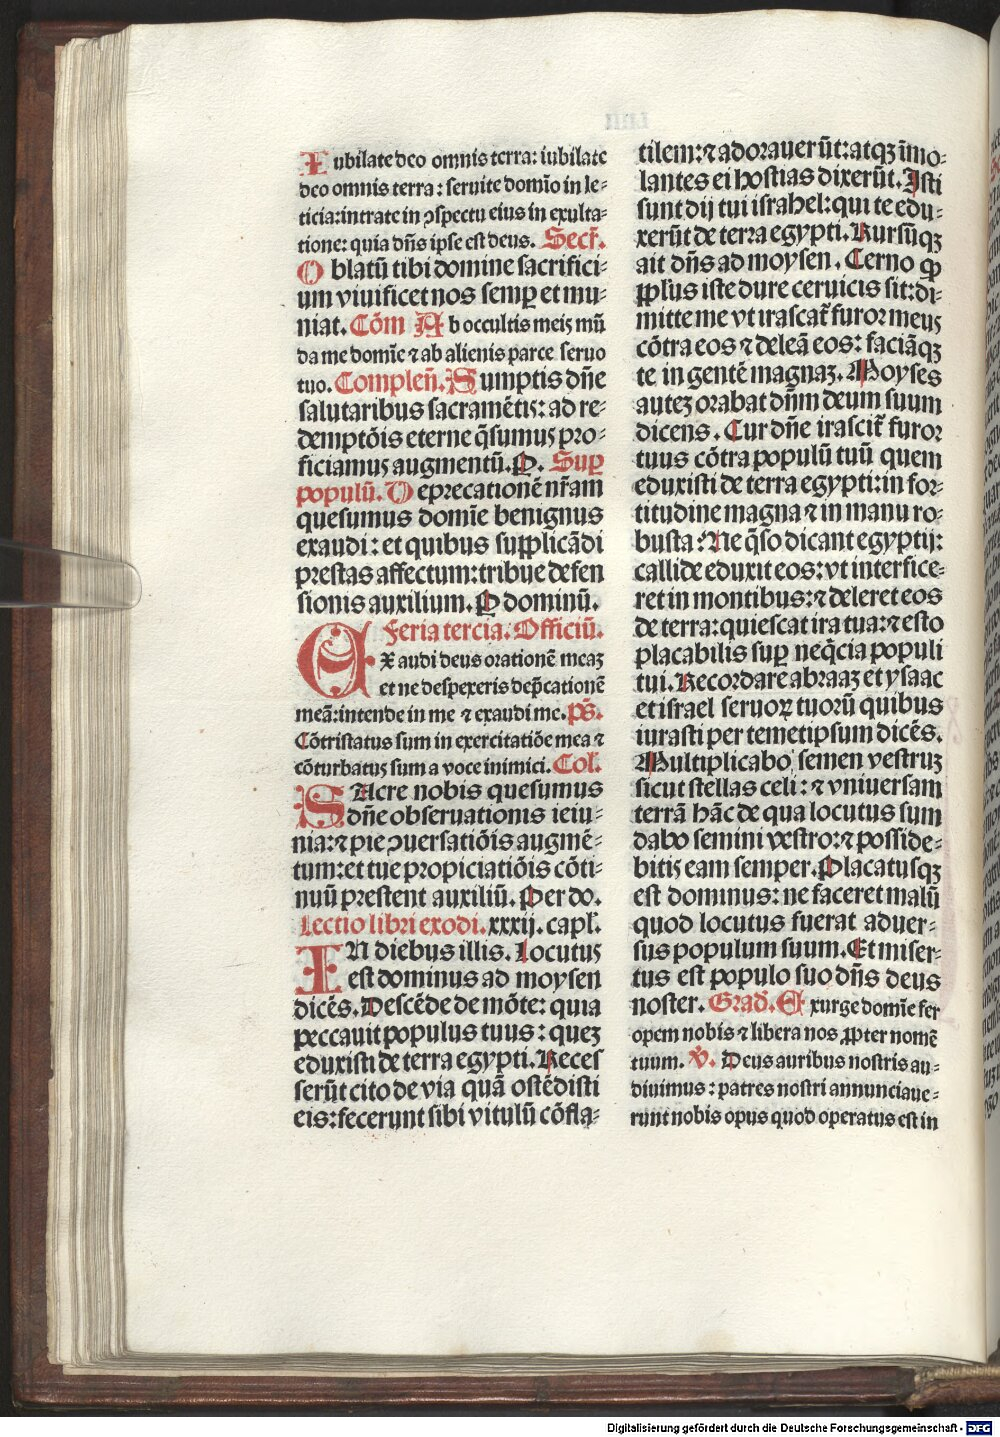 Iubilate deo omnis terra: iubilate
deo omnis terra: seruite domīo in le-
ticia: intrate in ꝯspectu eius in exulta-
tione: quia dn̄s ipse est deus. Secr̄.
Oblatū tibi domine sacrifici-
um viuificet nos semꝑ et mu-
niat. Cōm Ab occultis meis mū
da me domīe ⁊ ab alienis parce seruo
tuo. Complen̄. Sumptis dn̄e
salutaribus sacramētis: ad re-
demptōis eterne q̄sumus pro-
ficiamus augmentū. P. Suꝑ
populū. Deprecationē nr̄am
quesumus domīe benignus
exaudi: et quibus supplicādi
prestas affectum: tribue defen
sionis auxilium. P dominū.
Feria tercia. Officiū.
Exaudi deus orationē meaꝫ
et ne despexeris dep̄cationē
meā: intende in me ⁊ exaudi me. ps̄.
Cōtristatus sum in exercitatiōe mea ⁊
cōturbatus sum a voce inimici. Col̄.
SAcre nobis quesumus
dn̄e obseruationis ieiu-
nia: ⁊ pie ꝯuersatiōis augmē-
tum: et tue propiciatiōis cōti-
nuū prestent auxiliū. Per do.
Lectio libri exodi. xxxij. capl̄.
IN diebus illis. Locutus
est dominus ad moysen
dicēs. Descēde de mōte: quia
peccauit populus tuus: queꝫ
eduxisti de terra egypti. Reces
serūt cito de via quā ostēdisti
eis: fecerunt sibi vitulū cōfla-
tilem: ⁊ adorauerūt: atqꝫ īmo-
lantes ei hostias dixerūt. Isti
sunt dij tui israhel: qui te edu-
xerūt de terra egypti. Rursūqꝫ
ait dn̄s ad moysen. Cerno ꝙ
ꝓpl̄us iste dure ceruicis sit: di-
mitte me vt irascat̄ furor meus
cōtra eos ⁊ deleā eos: faciāqꝫ
te in gentē magnaꝫ. Moyses
auteꝫ orabat dn̄m deum suum
dicens. Cur dn̄e irascit̄ furor
tuus cōtra populū tuū quem
eduxisti de terra egypti: in for-
titudine magna ⁊ in manu ro-
busta: Ne q̄so dicant egyptij:
callide eduxit eos: vt interfice-
ret in montibus: ⁊ deleret eos
de terra: quiescat ira tua: ⁊ esto
placabilis suꝑ neq̄cia populi
tui. Recordare abraaꝫ et ysaac
et israel seruoꝝ tuorū quibus
iurasti per temetipsum dicēs.
Multiplicabo semen vestruꝫ
sicut stellas celi: ⁊ vniuersam
terrā hāc de qua locutus sum
dabo semini vestro: ⁊ posside-
bitis eam semper. Placatusqꝫ
est dominus: ne faceret malū
quod locutus fuerat aduer-
sus populum suum. Et miser-
tus est populo suo dn̄s deus
noster. Grad̄. Exurge domīe fer
opem nobis ⁊ libera nos ꝓpter nomē
tuum. V̄. Deus auribus nostris au-
diuimus: patres nostri annunciaue-
runt nobis opus quod operatus est in
Digitalisierung gefördert durch die Deutsche Forschungsgemeinschaft - DFG